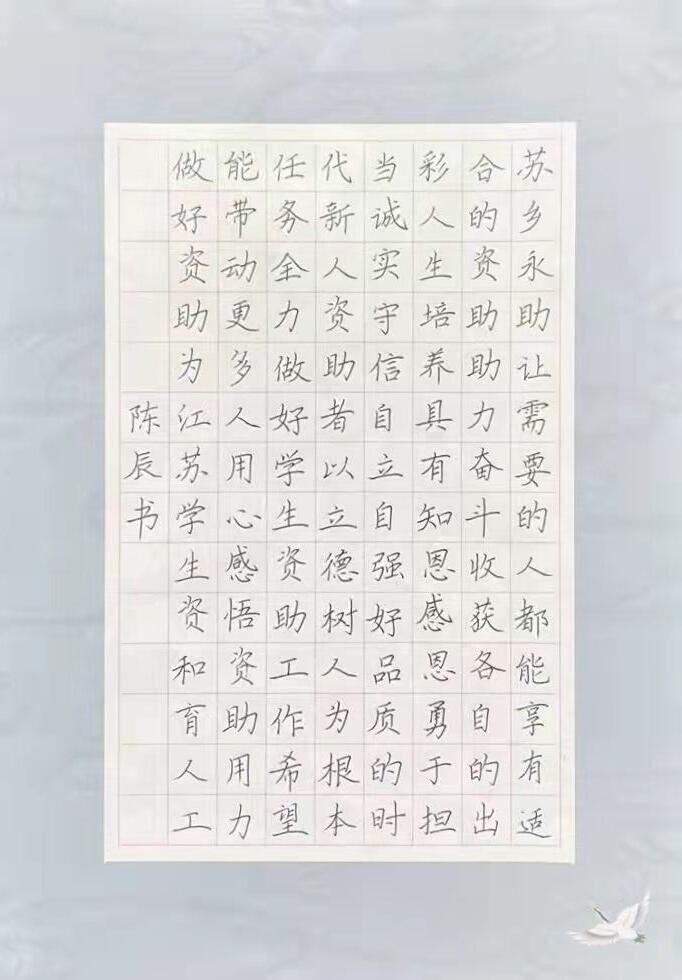 苏乡永助让需要的人都能享有适
合的资助助力奋斗收获各自的出
彩人生培养具有知恩感恩勇于担
当诚实守信自立自强好品质的时
代新人资助者以立德树人为根本
任务全力做好学生资助工作希望
能带动更多人用心感悟资助用力
做好资助为江苏学生资和育人工
陈辰书